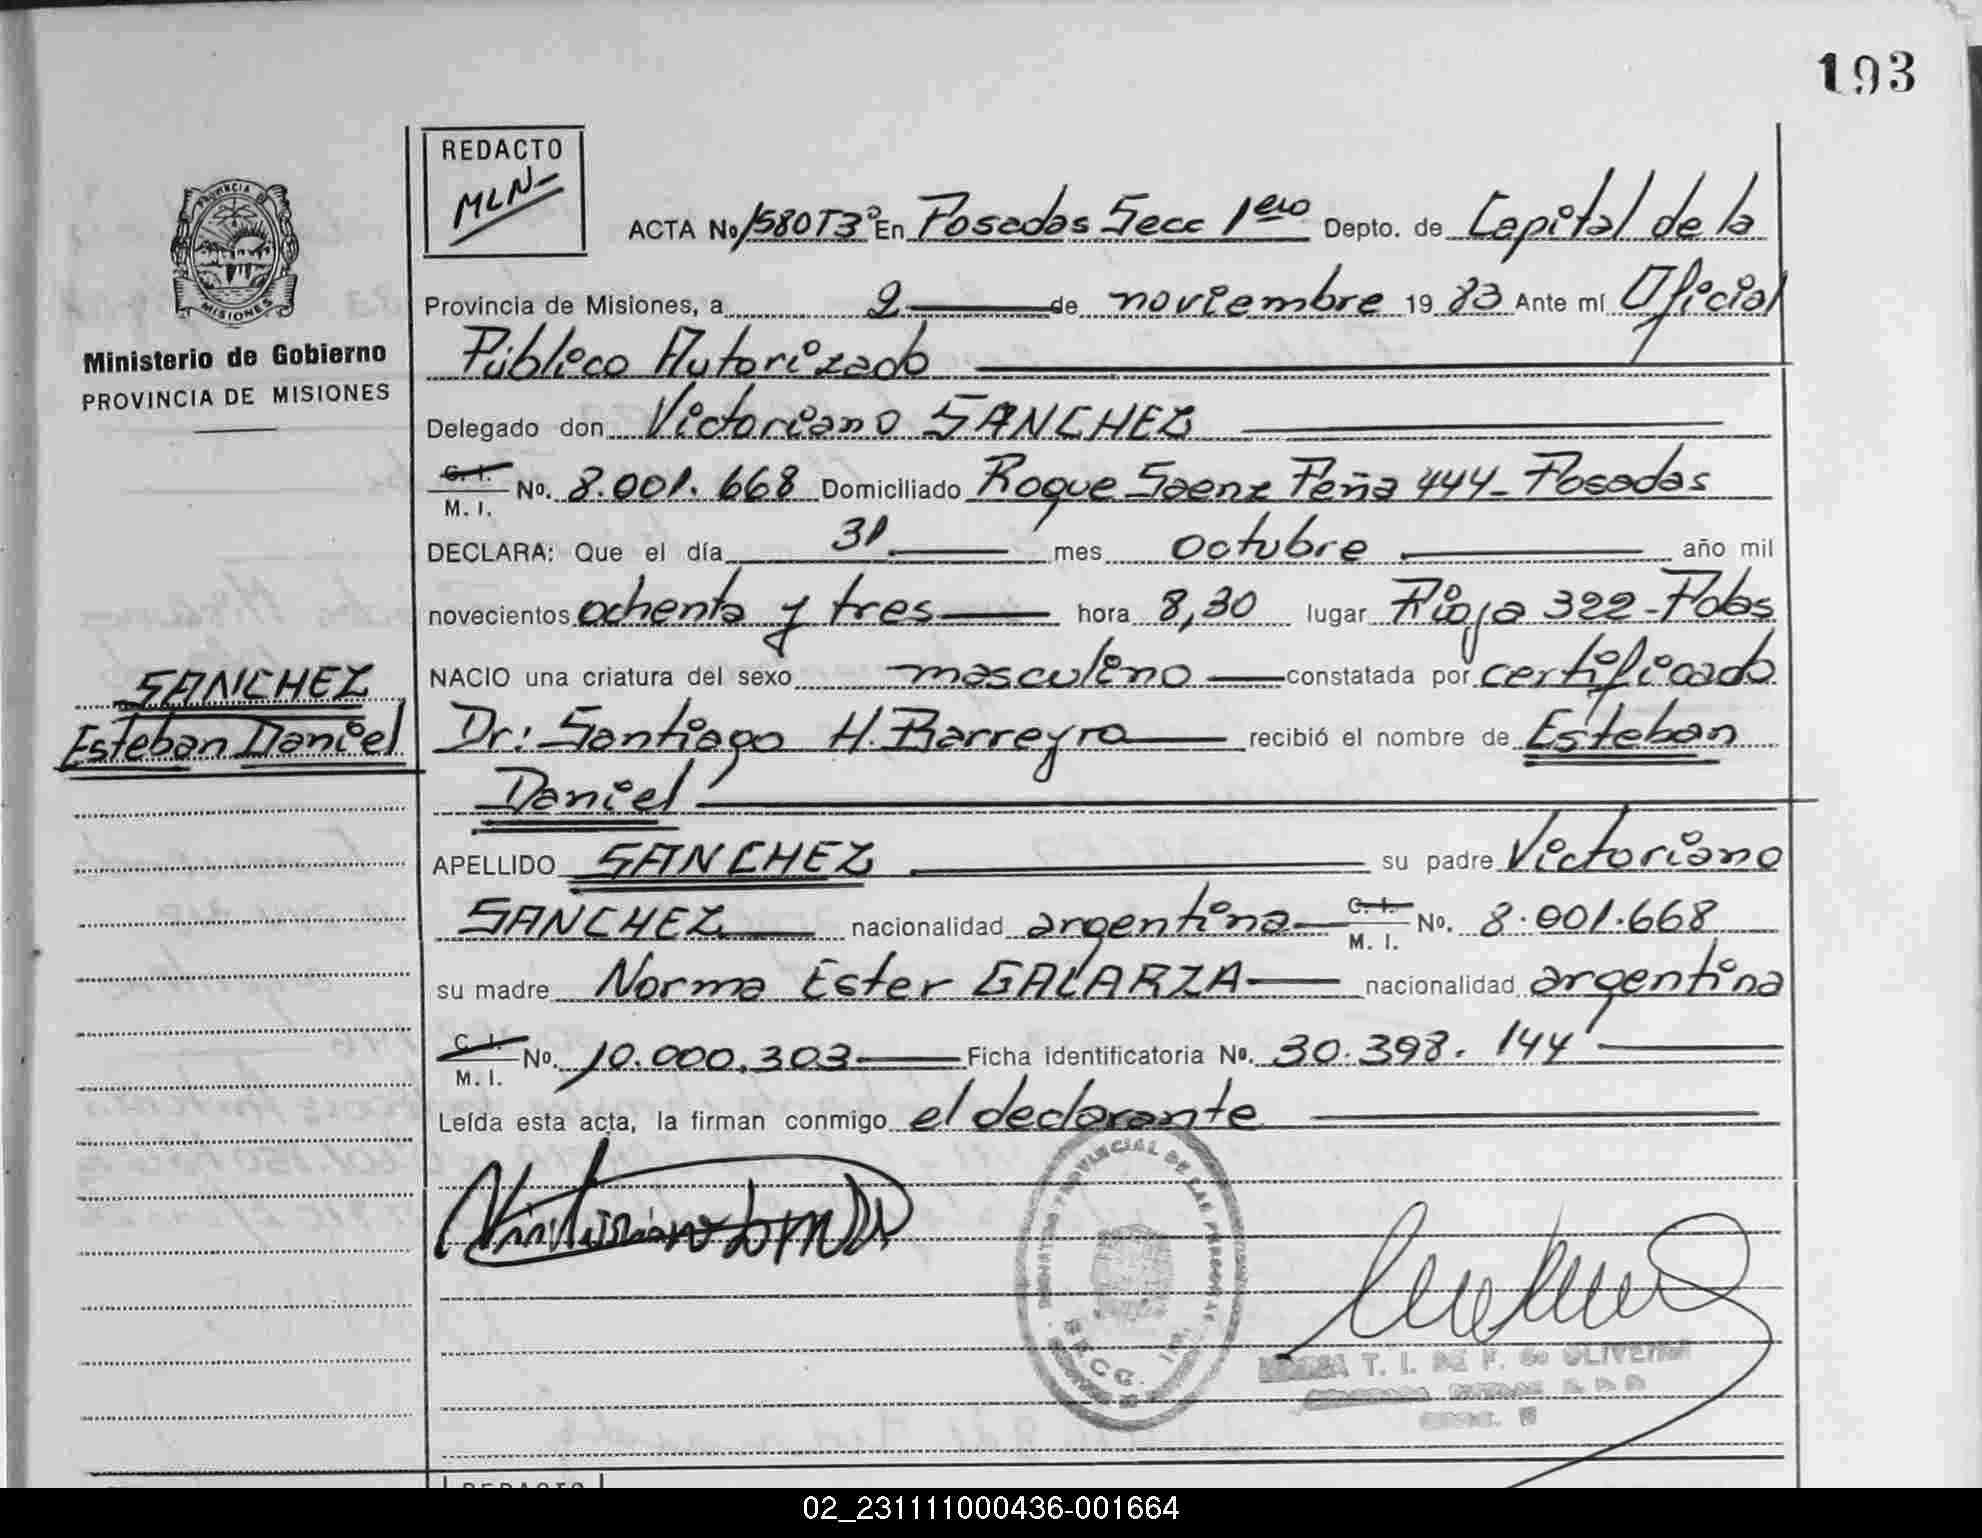 193
REDACTO
MLN-
ACTA No 1580T3º En Posadas Secc 1era Depto. de Capital de la
PROVINCIA DE
MISIONES
Provincia de Misiones, a 2 de noviembre 1983 Ante mí Oficial
Ministerio de Gobierno
PROVINCIA DE MISIONES
Público Autorizado
Delegado don Victoriano SANCHEZ
C. I.
M. I. No. 8.001.668 Domiciliado Roque Saenz Peña 444- Posadas
DECLARA: Que el día 31 mes octubre año mil
novecientos ochenta y tres hora 8,30 lugar Rioja 322-Pdas
NACIO una criatura del sexo masculino constatada por certificado
SANCHEZ
Esteban Daniel
Dr: Santiago H. Barreyra recibió el nombre de Esteban
Daniel
APELLIDO SANCHEZ su padre Victoriano
SANCHEZ nacionalidad argentina C. I. M. I. No. 8.001.668
su madre Norma Ester GALARZA nacionalidad argentina
C. I.
M. I. No. 10.000.303 Ficha identificatoria No. 30.398.144
Leída esta acta, la firman conmigo el declarante
PROVINCIAL DE LAS PERSONAS
SECC. 1ra.
T. I. DE F. de OLIVEIRA
REDACTO
02_231111000436-001664